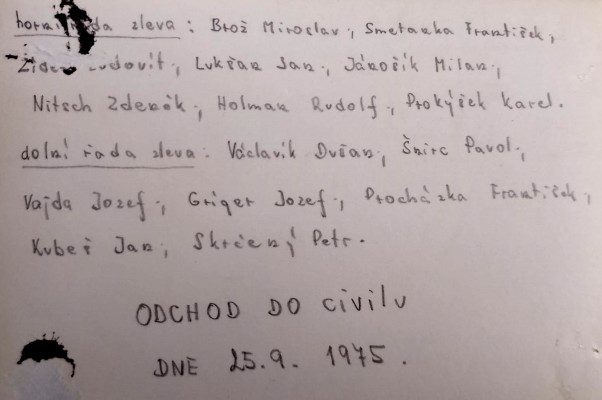 horní řada zleva: Brož Miroslav., Smetanka František,
Ludovít., Lukšan Jan., Jánošík Milan.,
Nitsch Zdeněk., Holman Rudolf., Prokýšek Karel.
dolní řada zleva: Václavík Dušan., Šnirc Pavol.,
Vajda Jozef., Griger Jozef., Procházka František.,
Kubeš Jan., Skrčený Petr.
ODCHOD DO CIVILU
DNE 25.9. 1975.